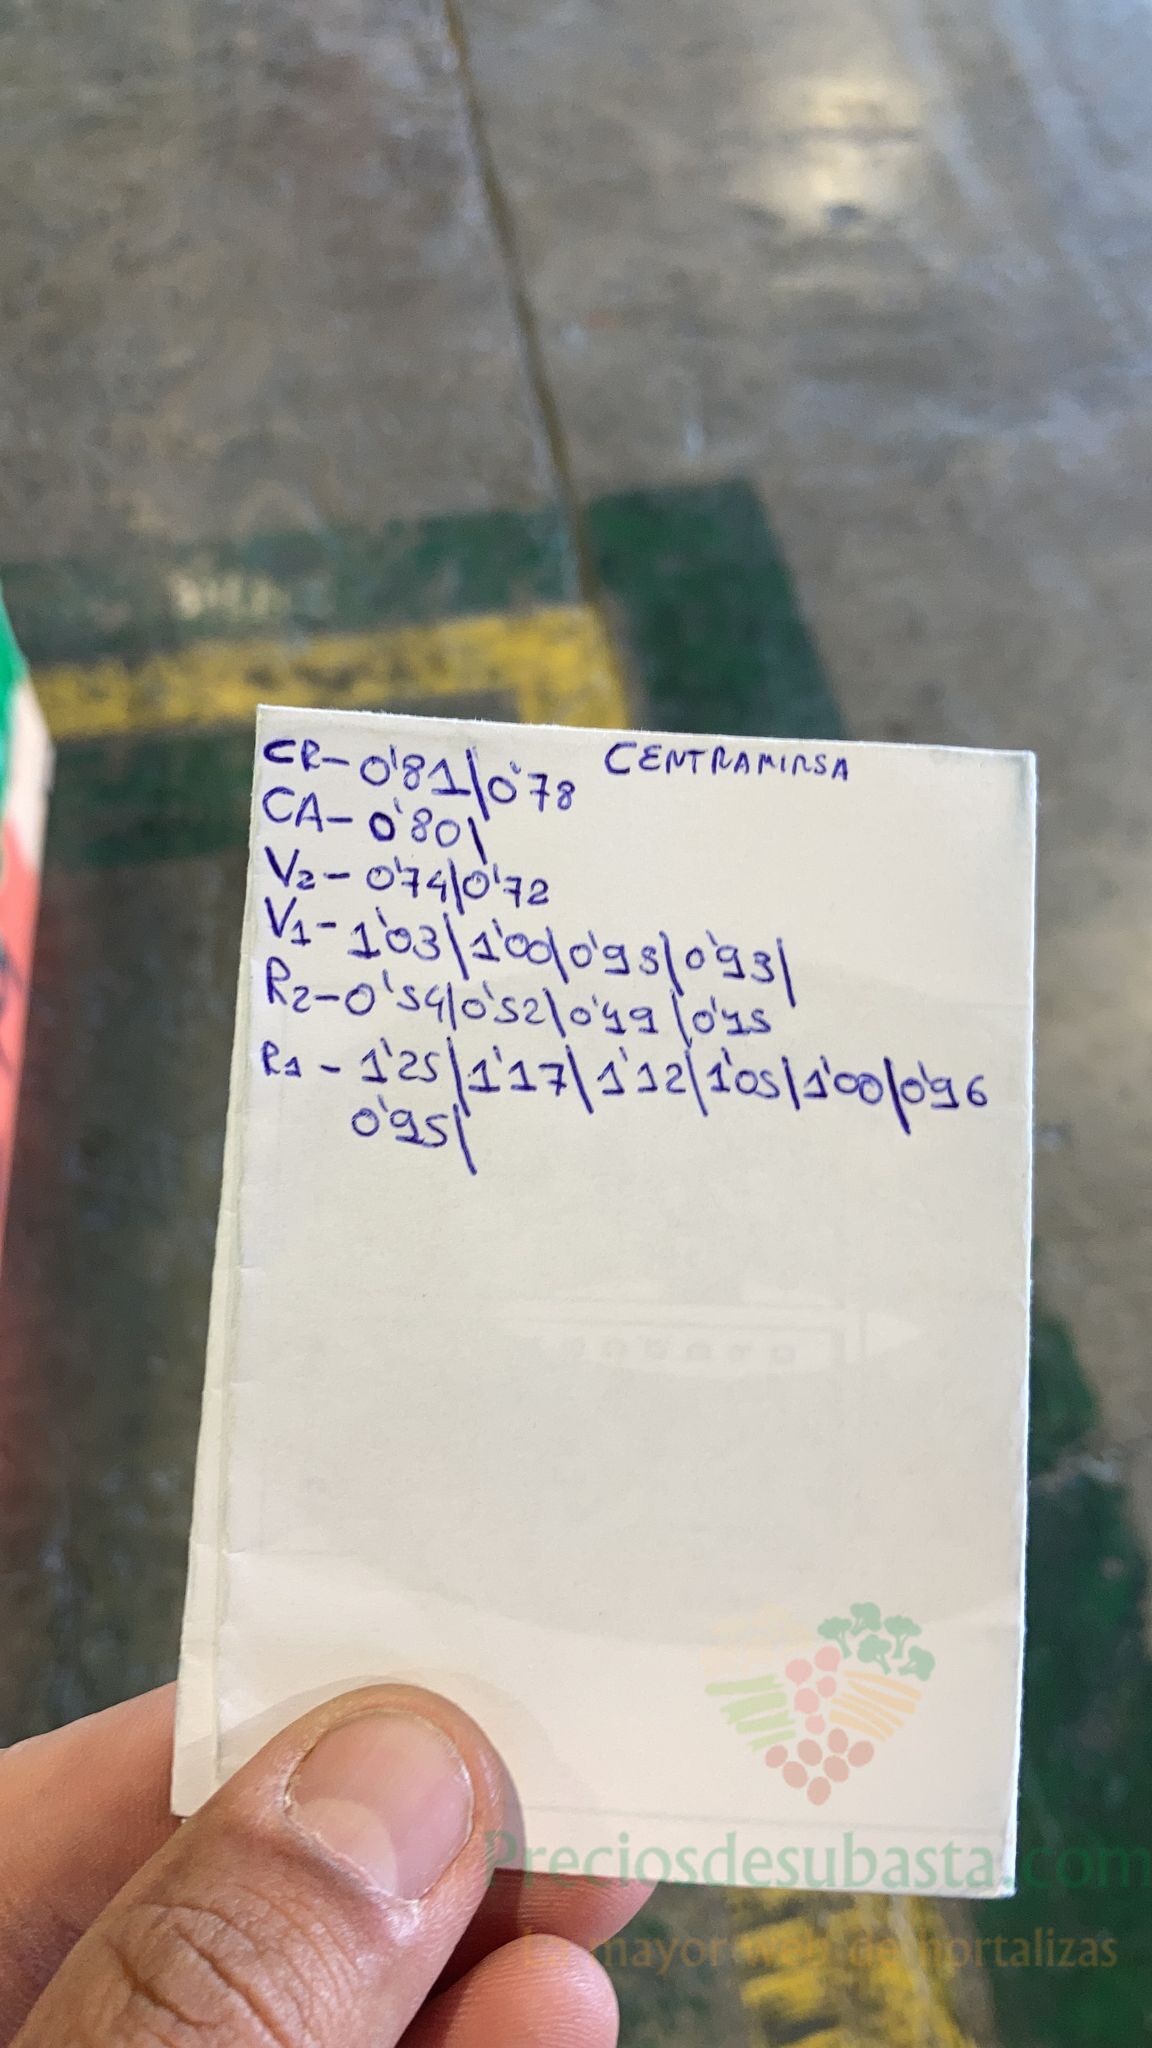 CR-0'81/0'78 CENTRAMIRSA
CA-0'80/
V2-0'74/0'72
V1-1'03/1'00/0'93/0'93/
R2-0'54/0'52/0'49/0'45
R1-1'25/1'17/1'12/1'05/1'00/0'96
0'95/
Preciosdesubasta.com
La mayor web de hortalizas